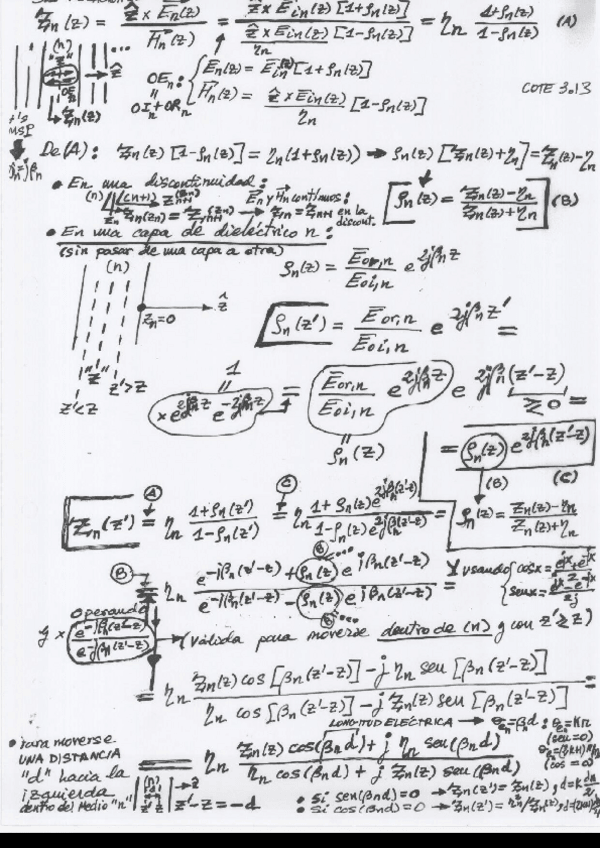 Z_n(z) = ẑ × E_n(z) / H_n(z) = ẑ × E_in(z) [1+ρ_n(z)] / (ẑ × E_in(z)/η_n [1-ρ_n(z)]) = η_n (1+ρ_n(z))/(1-ρ_n(z)) (A)
(n)
"z"
ẑ
OE_n : { E_n(z) = E_in(z) [1+ρ_n(z)]
OI_n + OR_n
H_n(z) = ẑ × E_in(z)/η_n [1-ρ_n(z)]
COTE 3.13
Z_n(z)
MSP
De (A): Z_n(z) [1-ρ_n(z)] = η_n (1+ρ_n(z)) → ρ_n(z) [Z_n(z)+η_n] = Z_n(z)-η_n
• En una discontinuidad:
(n) (n+1)
Z_n(z_n) = Z_n+1(z_n) E_n y H_n continuos: → Z_n = Z_n+1 en la discont.
ρ_n(z) = (Z_n(z)-η_n)/(Z_n(z)+η_n) (B)
• En una capa de dieléctrico n:
(sin pasar de una capa a otra)
(n)
ρ_n(z) = E_or,n / E_oi,n e^{2jβ_n z}
ẑ
z_n=0
ρ_n(z') = E_or,n / E_oi,n e^{2jβ_n z'} =
"z"
z'<z z'>z
1
× e^{2jβ_n z} e^{-2jβ_n z}
= E_or,n / E_oi,n e^{2jβ_n z} e^{2jβ_n (z'-z)} =
≥0
ρ_n(z)
= ρ_n(z) e^{2jβ_n (z'-z)}
(B) (C)
(A) (C)
Z_n(z') = η_n (1+ρ_n(z'))/(1-ρ_n(z')) = η_n (1+ρ_n(z) e^{2jβ_n(z'-z)})/(1-ρ_n(z) e^{2jβ_n(z'-z)}) =
ρ_n(z) = (Z_n(z)-η_n)/(Z_n(z)+η_n)
(B) = η_n (e^{-jβ_n(z'-z)} + ρ_n(z) e^{jβ_n(z'-z)})/(e^{-jβ_n(z'-z)} - ρ_n(z) e^{jβ_n(z'-z)}) =
y usando { cos x = (e^{jx}+e^{-jx})/2
sen x = (e^{jx}-e^{-jx})/2j
operando
y × e^{-jβ_n(z'-z)} / e^{-jβ_n(z'-z)}
(válida para moverse dentro de (n) y con z' ≥ z)
= η_n (Z_n(z) cos [β_n(z'-z)] - j η_n sen [β_n(z'-z)])/(η_n cos [β_n(z'-z)] - j Z_n(z) sen [β_n(z'-z)]) =
LONGITUD ELECTRICA → θ_en = β_n d : θ_en = Kπ
(sen=0)
(cos=0)
• para moverse
UNA DISTANCIA
"d" hacia la
izquierda
dentro del Medio "n"
= η_n (Z_n(z) cos(β_n d) + j η_n sen(β_n d))/(η_n cos(β_n d) + j Z_n(z) sen(β_n d))
(n)
d
z' z
z'-z = -d
• Si sen(β_n d)=0 → Z_n(z') = Z_n(z)
• Si cos(β_n d)=0 → Z_n(z') = η_n²/Z_n(z)